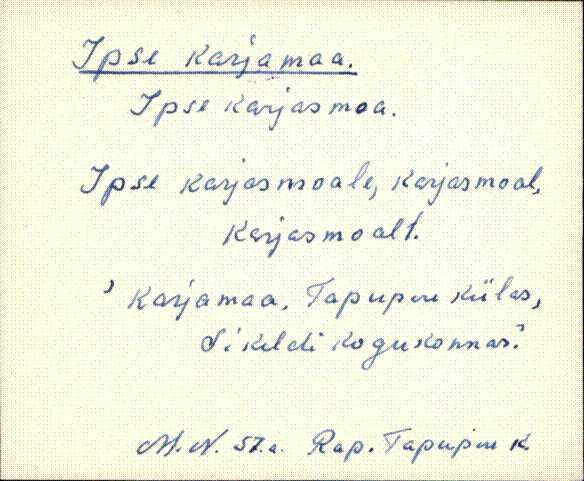 Ipse karjamaa.
Ipse karjasmoa.
Ipse karjasmoale, karjasmoal,
karjasmoalt.
’ karjamaa, Tapupere külas,
Sikeldi kogukonnas.’
M.N. 57.a. Rap. Tapupere k.